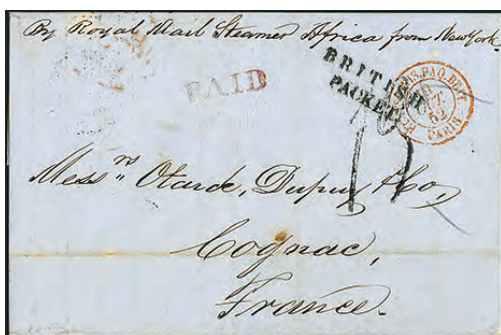 By Royal Mail Steamer Africa from New York.
PAID
BRITISH
PACKET
OCT
52
PARIS
Messrs Otard, Dupuy & Co,
Cognac,
France.